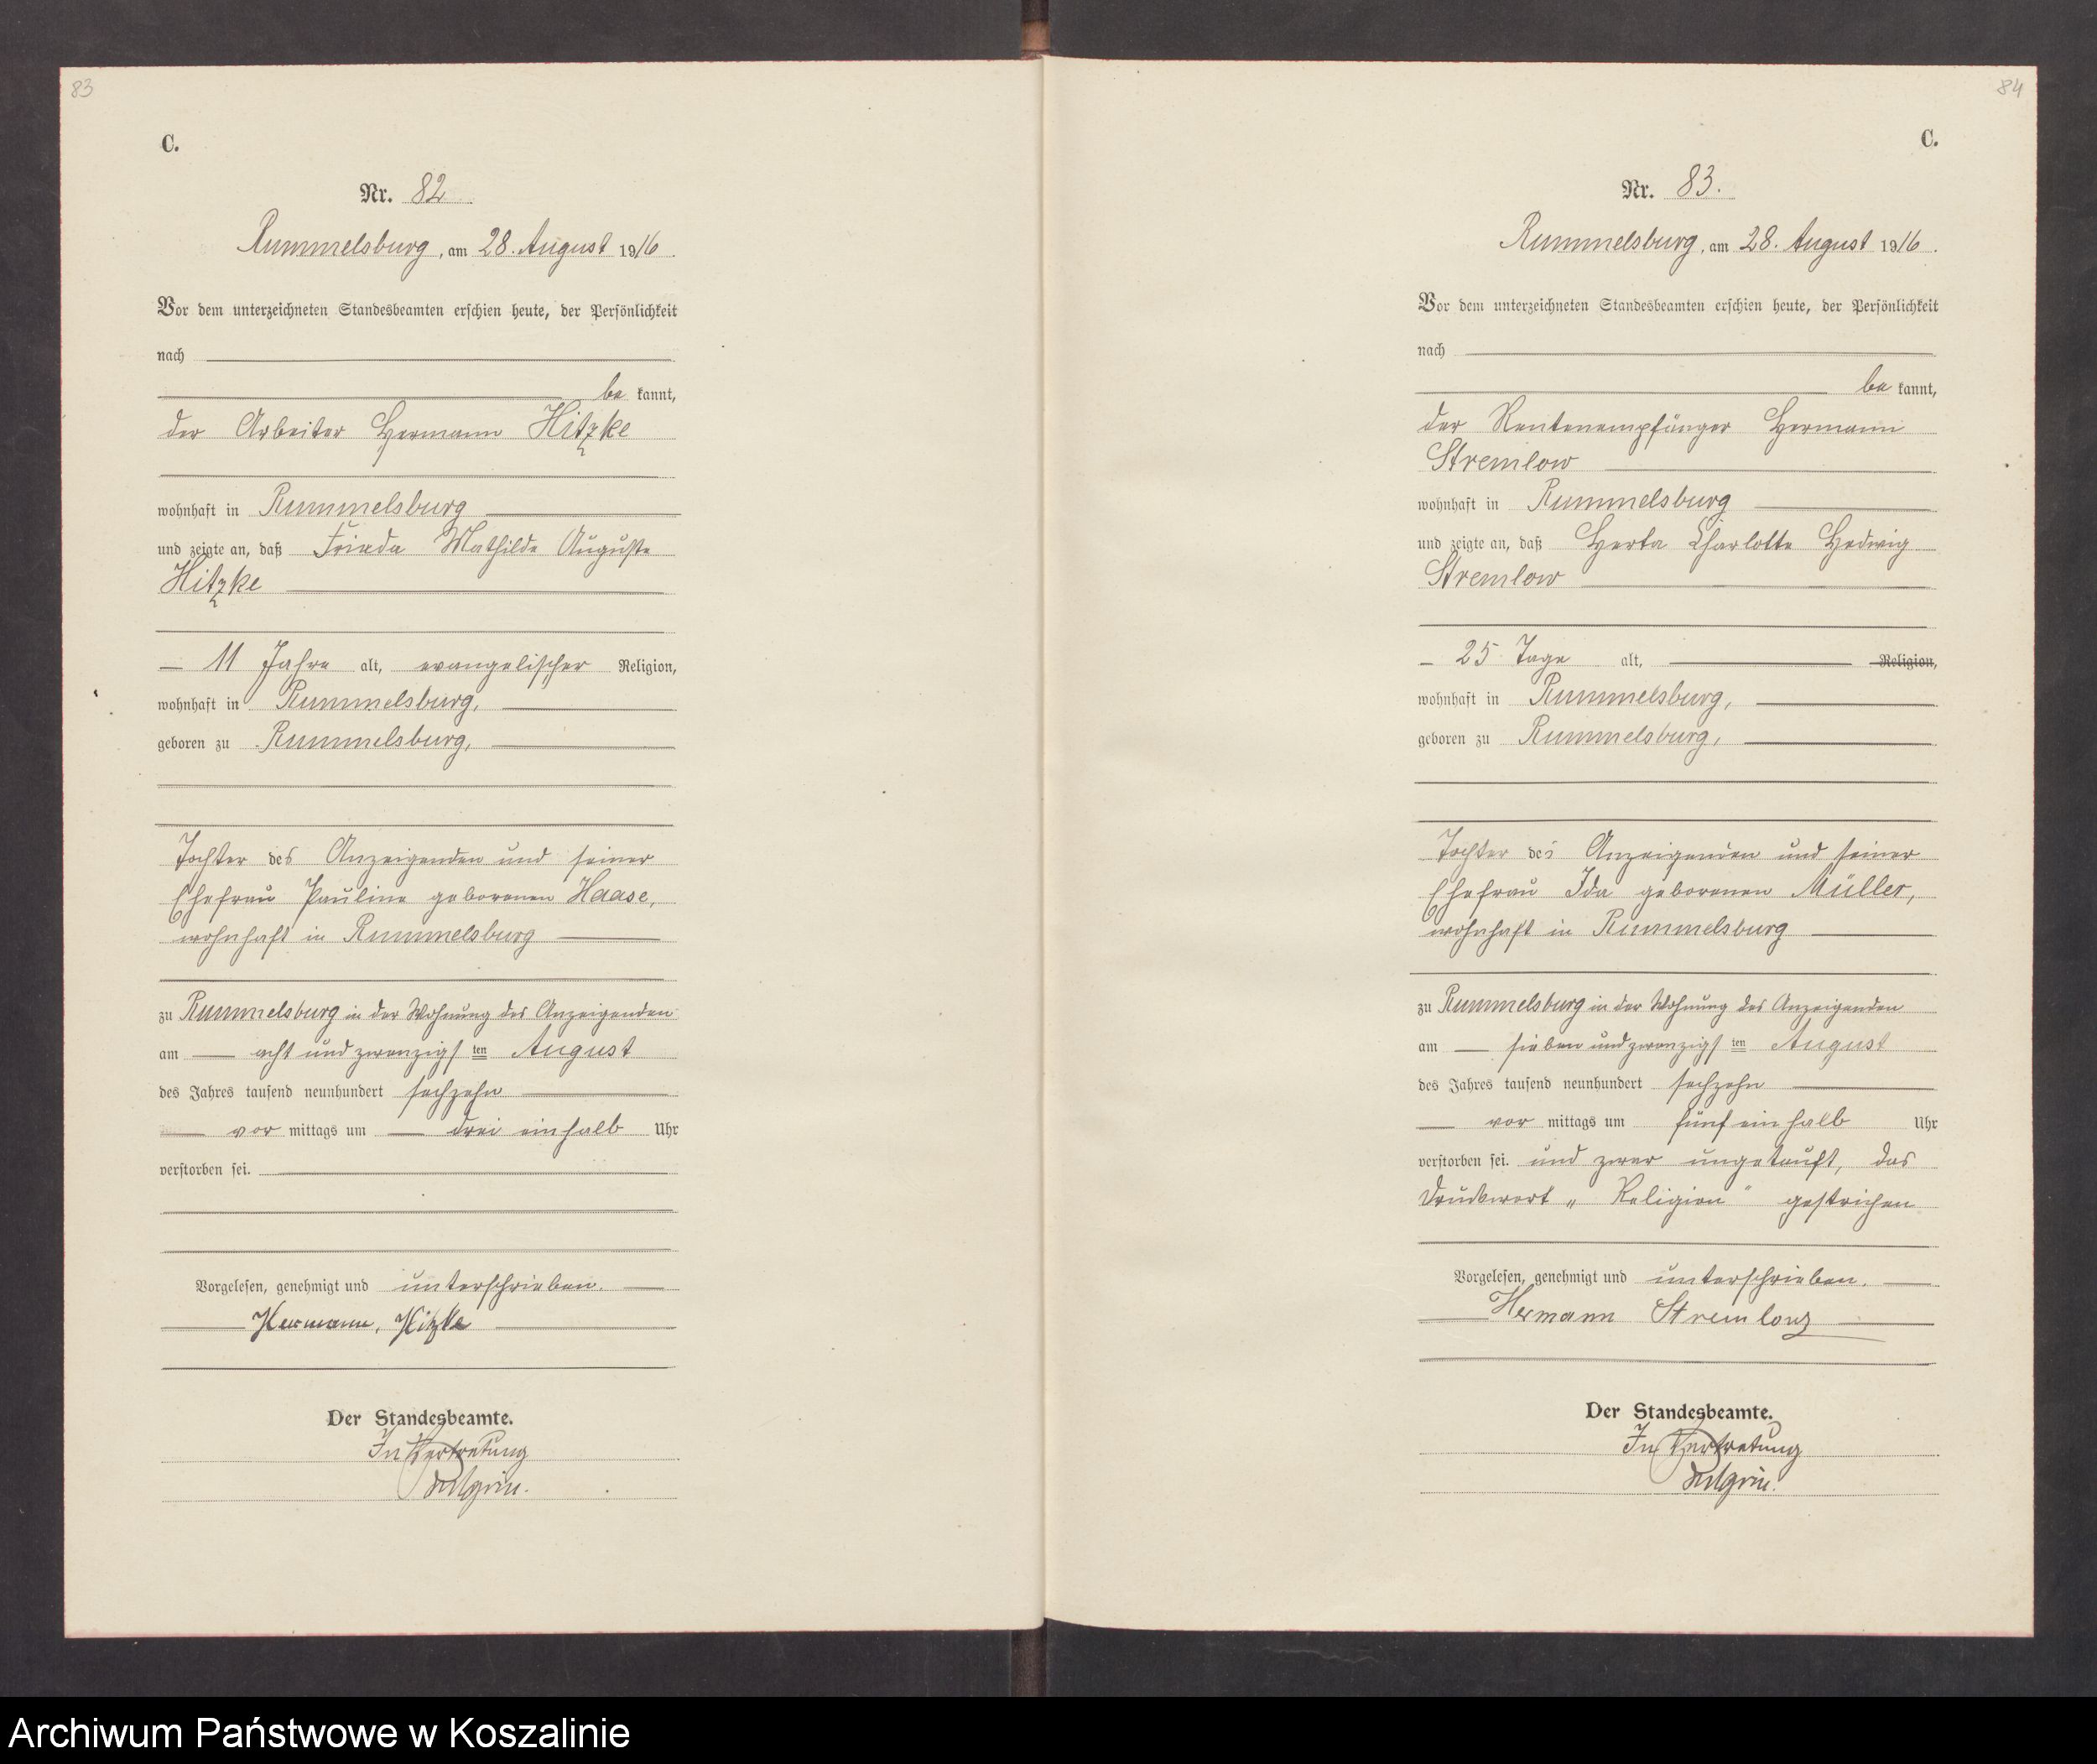 83
C.
Nr. 82
Rummelsburg, am 28. August 1916.
Vor dem unterzeichneten Standesbeamten erschien heute, der Persönlichkeit
nach
be kannt,
der Arbeiter Hermann Hitzke
wohnhaft in Rummelsburg
und zeigte an, daß Frieda Mathilde Auguste
Hitzke
11 Jahre alt, evangelischer Religion,
wohnhaft in Rummelsburg,
geboren zu Rummelsburg,
Tochter des Anzeigenden und seiner
Ehefrau Pauline geborenen Haase,
wohnhaft in Rummelsburg
zu Rummelsburg in der Wohnung des Anzeigenden
am acht und zwanzigsten August
des Jahres tausend neunhundert sechzehn
vor mittags um drei einhalb Uhr
verstorben sei.
Vorgelesen, genehmigt und unterschrieben.
Hermann, Hitzke
Der Standesbeamte.
In Vertretung
84
C.
Nr. 83.
Rummelsburg, am 28. August 1916.
Vor dem unterzeichneten Standesbeamten erschien heute, der Persönlichkeit
nach
be kannt,
der Rentenempfänger Hermann
Stremlow
wohnhaft in Rummelsburg
und zeigte an, daß Herta Charlotte Hedwig
Stremlow
25 Tage alt, Religion,
wohnhaft in Rummelsburg,
geboren zu Rummelsburg,
Tochter des Anzeigenden und seiner
Ehefrau Ida geborenen Müller,
wohnhaft in Rummelsburg
zu Rummelsburg in der Wohnung des Anzeigenden
am sieben und zwanzigsten August
des Jahres tausend neunhundert sechzehn
vor mittags um fünf einhalb Uhr
verstorben sei. und zwar ungetauft, das
Druckwort „Religion" gestrichen
Vorgelesen, genehmigt und unterschrieben.
Hermann Stremlow
Der Standesbeamte.
In Vertretung
Archiwum Państwowe w Koszalinie